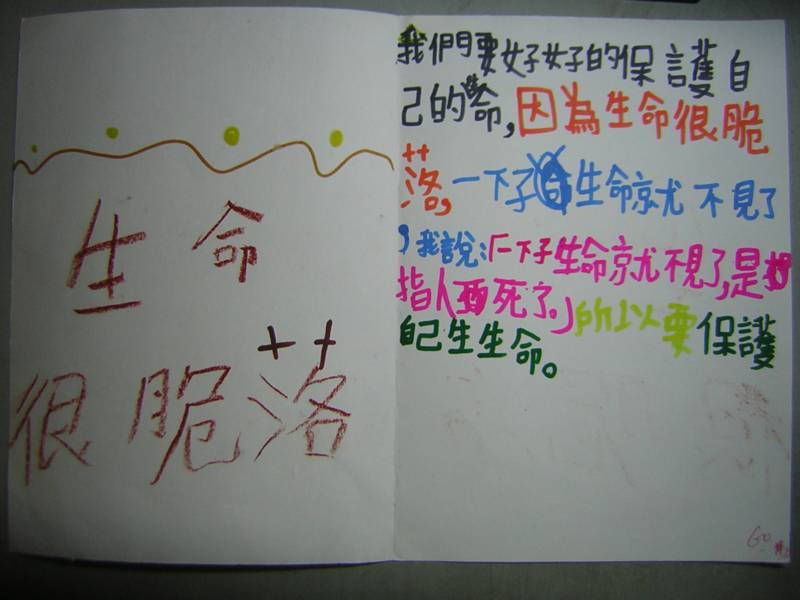 生命
很脆落
我們要好好的保護自
己的命,因為生命很脆
落,一下子生命就不見了
,我說:「一下子生命就不見了,是
指人死了。」所以要保護
自己生生命。
Go